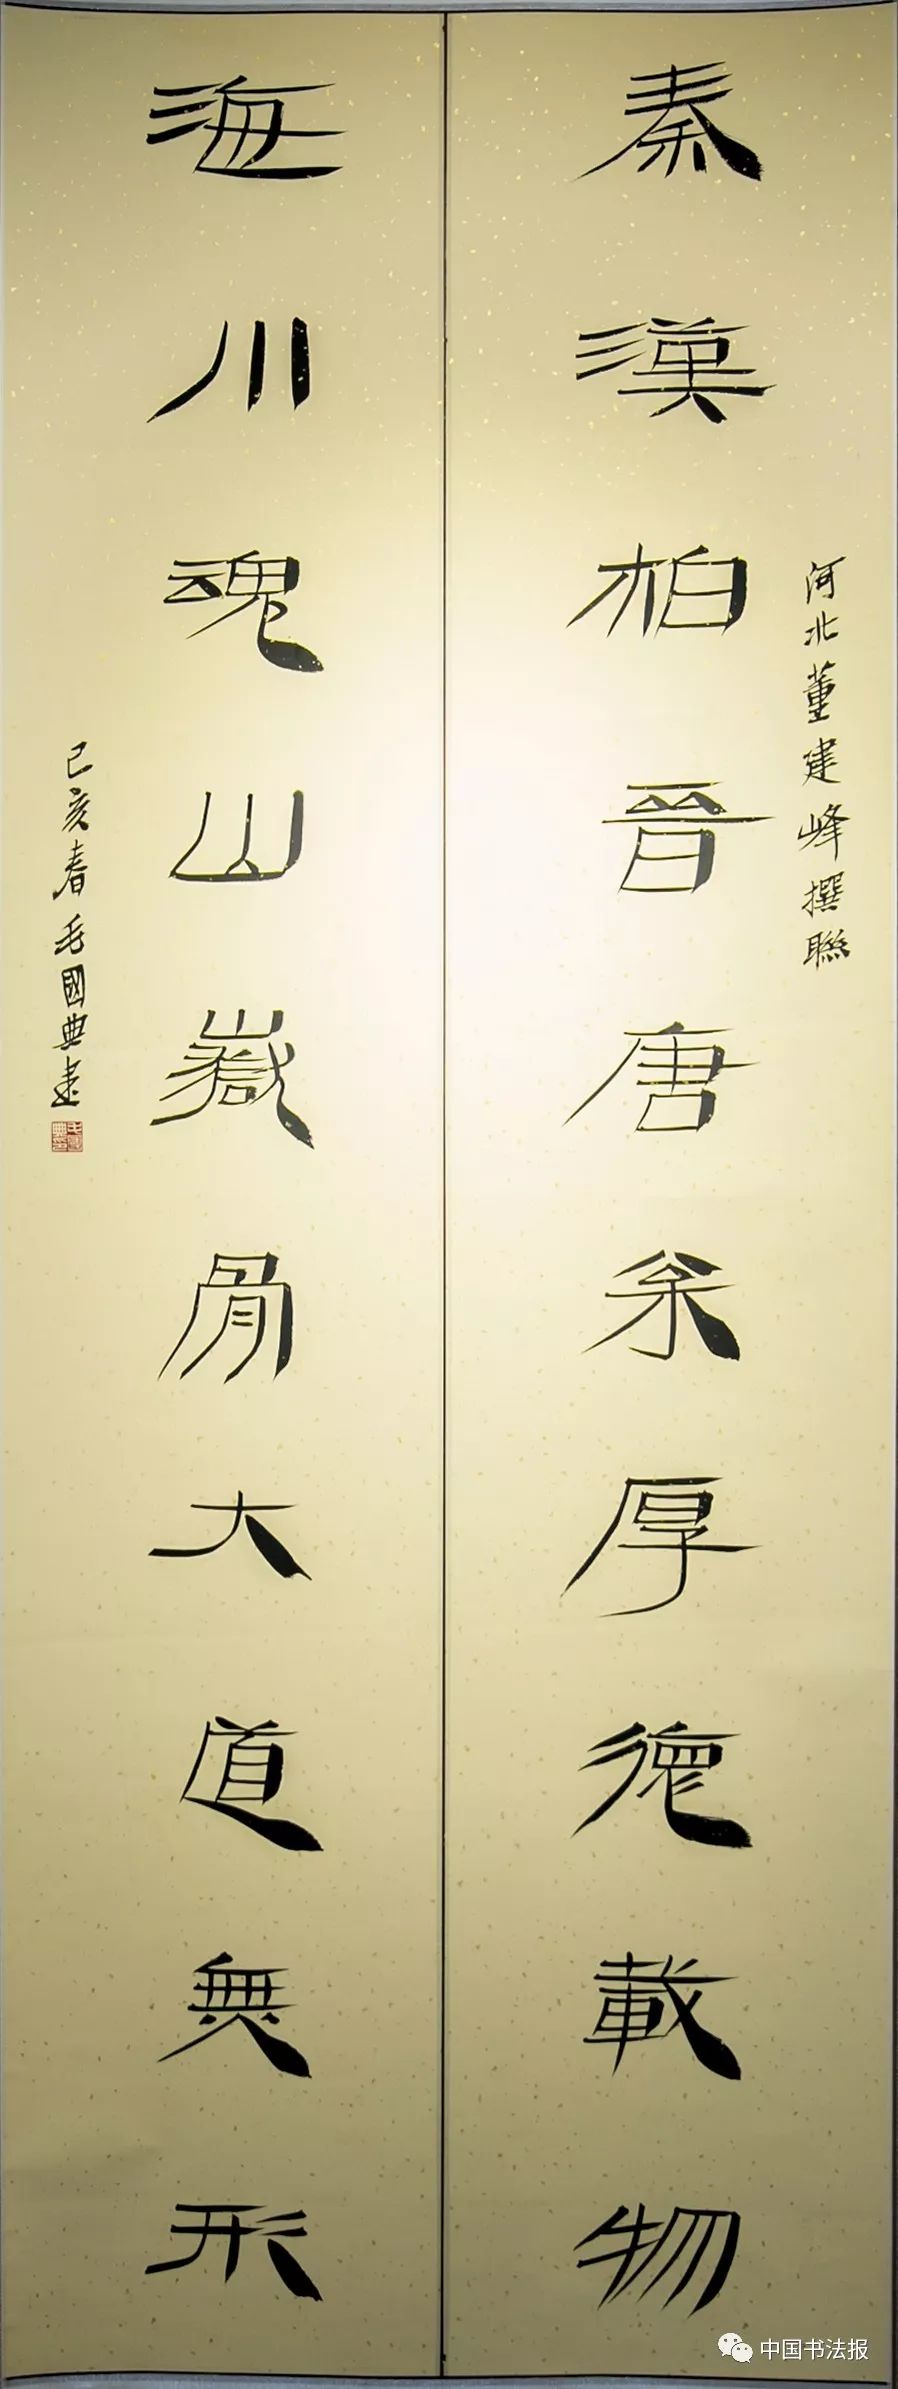 河北董建峰撰聯
秦漢柏晉唐枀厚德載物
海川魂山嶽骨大道無形
己亥春毛國典書
中国书法报